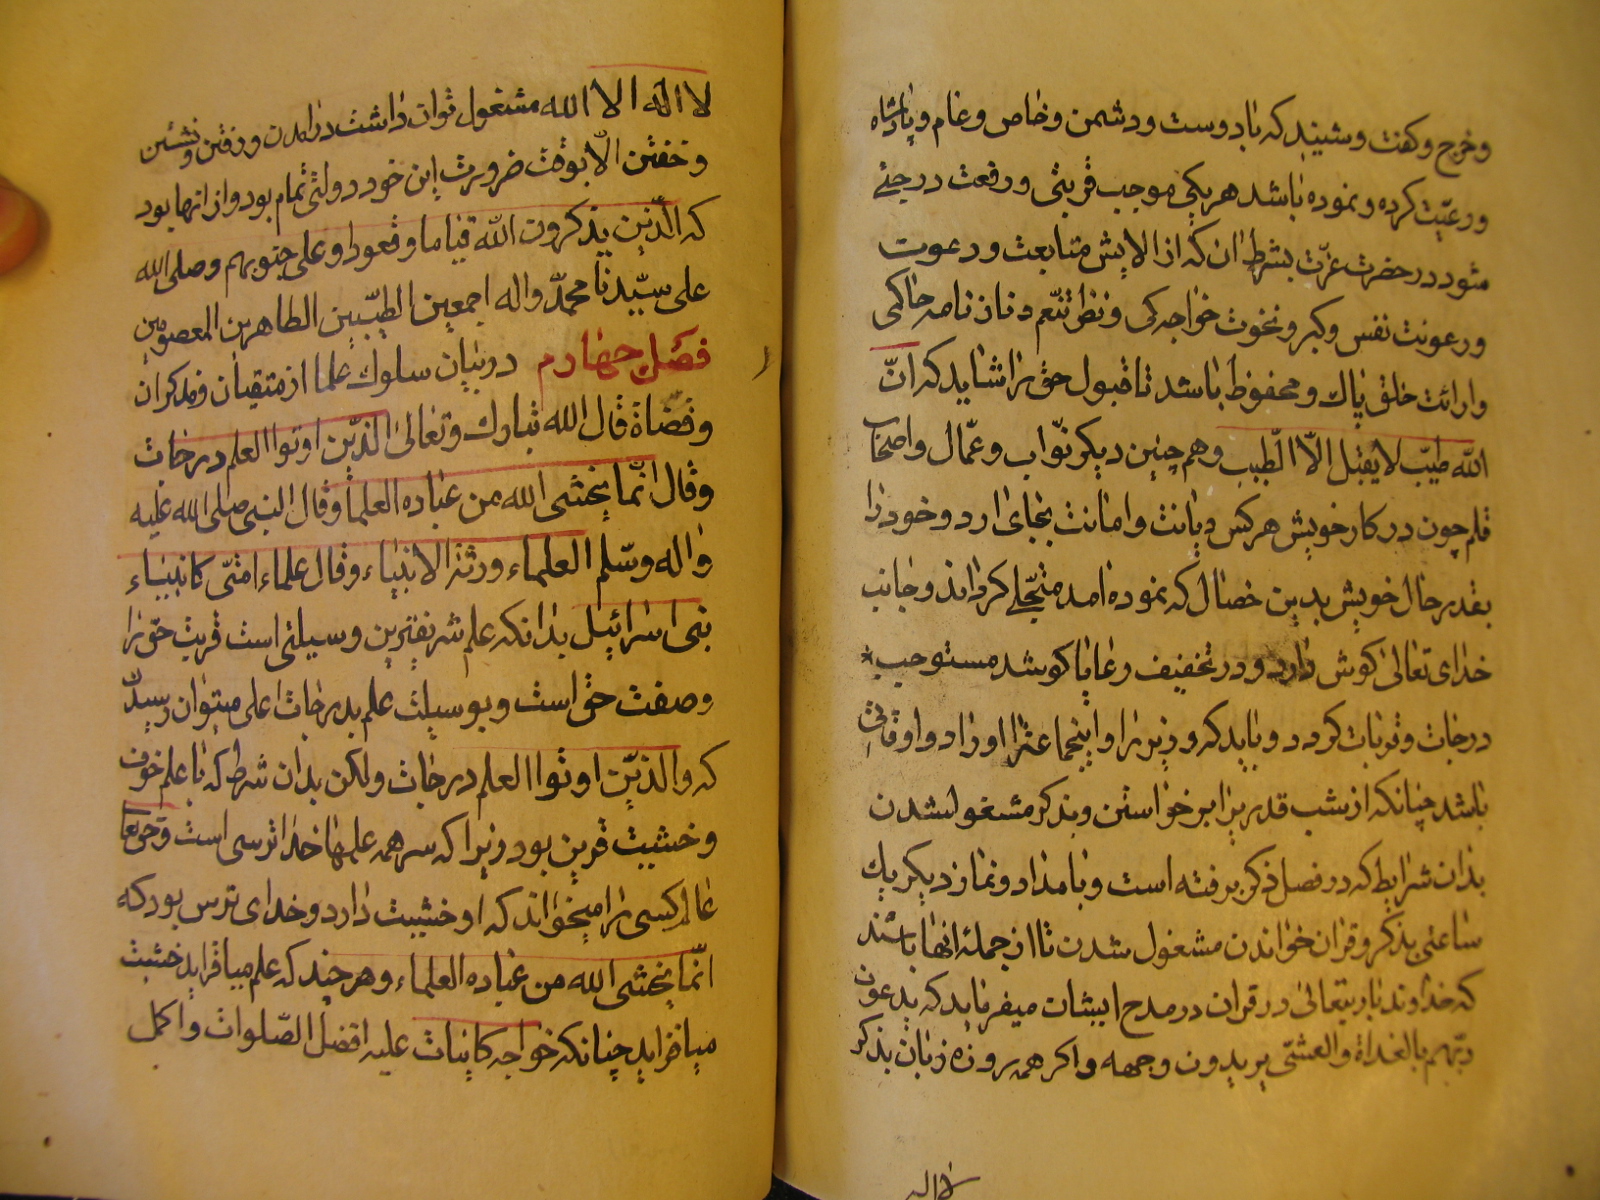 و خرج و گفت و شنید که با دوست و دشمن و خاص و عام و پادشاه
و رعیّت کرده و نموده باشد هر یکی موجب قربتی و رفعت درجتی
شود در حضرت عزّت بشرط ان که از الایش متابعت و دعوت
و رعونت نفس و کبر و نخوت خواجه کی و نظر تنعم حاکمی
و ارائت خلق پاک و محفوظ باشد تا قبول حق را شاید که انّ
اللّه طیّب لا یقبل الّا الطّیب و هم چنین دیکر نوّاب و عمّال و اصحاب
قلم چون در کار خویش هر کس دیانت و امانت بجای ارد و خود را
بقدر حال خویش بدین خصال که نموده امد متجلّی کرداند و جانب
خدای تعالی کوش دارد و در تخفیف رعایا کوشد مستوجب
درجات و قربات کردد و باید که وزیر را و اینجماعترا اوراد و اوقاتی
باشد چنانکه از شب قدری برخواستن و بذکر مشغول شدن
بدان شرایط که در فصل ذکر برفته است و بامداد و نماز دیکر یک
ساعتی بذکر و قران خواندن مشغول شدن تا از جملهٔ انها باشند
که خداوند تعالی در قران در مدح ایشان میفرماید که یدعون
ربّهم بالغداة و العشیّ یریدون وجهه و اکر همه روزه زبان بذکر
لا اله
لا اله الا الله مشغول توان داشت در امدن و رفتن و نشستن
و خفتن الّا بوقت ضرورت این خود دولتی تمام بود و از انها بود
که الّذین یذکرون اللّه قیاما و قعودا و علی جنوبهم و صلی الله
علی سیّدنا محمّد و اله اجمعین الطیّبین الطاهرین المعصومین
فصل چهارم در بیان سلوک علما از متقیان و مذکران
و قضاة قال الله تبارک و تعالی الذین اوتوا العلم درجات
و قال انّما یخشی الله من عباده العلما و قال النبی صلی الله علیه
و اله و سلم العلماء ورثة الانبیاء و قال علماء امتی کانبیاء
بنی اسرائیل بدانکه علم شریفترین وسیلتی است قربت حق را
و صفت حق است و بوسیلت علم بدرجات اعلی میتوان رسید
که و الذین اوتوا العلم درجات ولکن بدان شرط که با علم خوف
و خشیت قرین بود زیرا که سر همه علمها خدا ترسی است و حق تعا
عالم کسی را میخواند که او خشیت دارد و خدای ترس بود که
انّما یخشی الله من عباده العلماء و هر چند که علم میافزاید خشیت
میافزاید چنانکه خواجه کاینات علیه افضل الصّلوات و اکمل